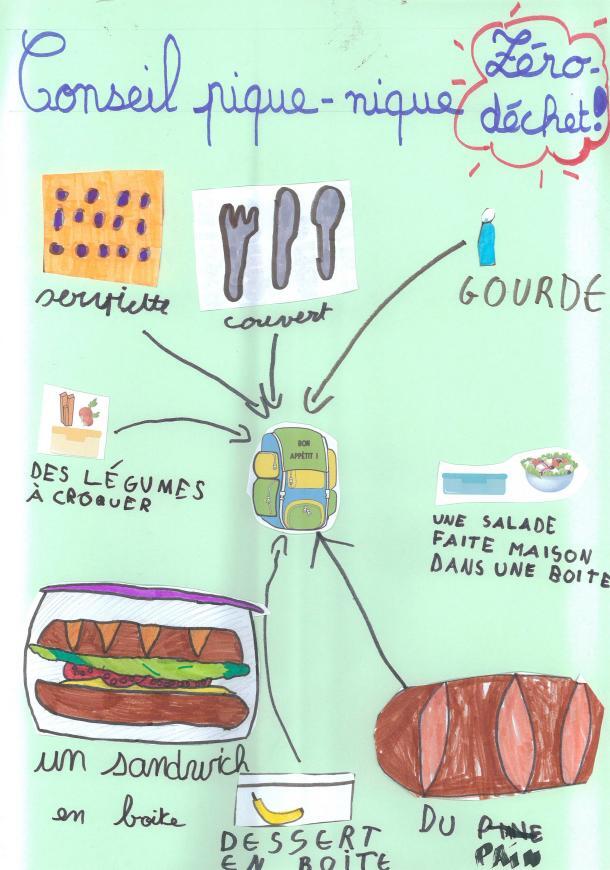 Conseil pique-nique Zéro-
déchet!
serviette
couvert
GOURDE
BON
APPÉTIT !
DES LÉGUMES
À CROQUER
UNE SALADE
FAITE MAISON
DANS UNE BOITE
un sandwich
en boite
DESSERT
EN BOITE
DU PAIN